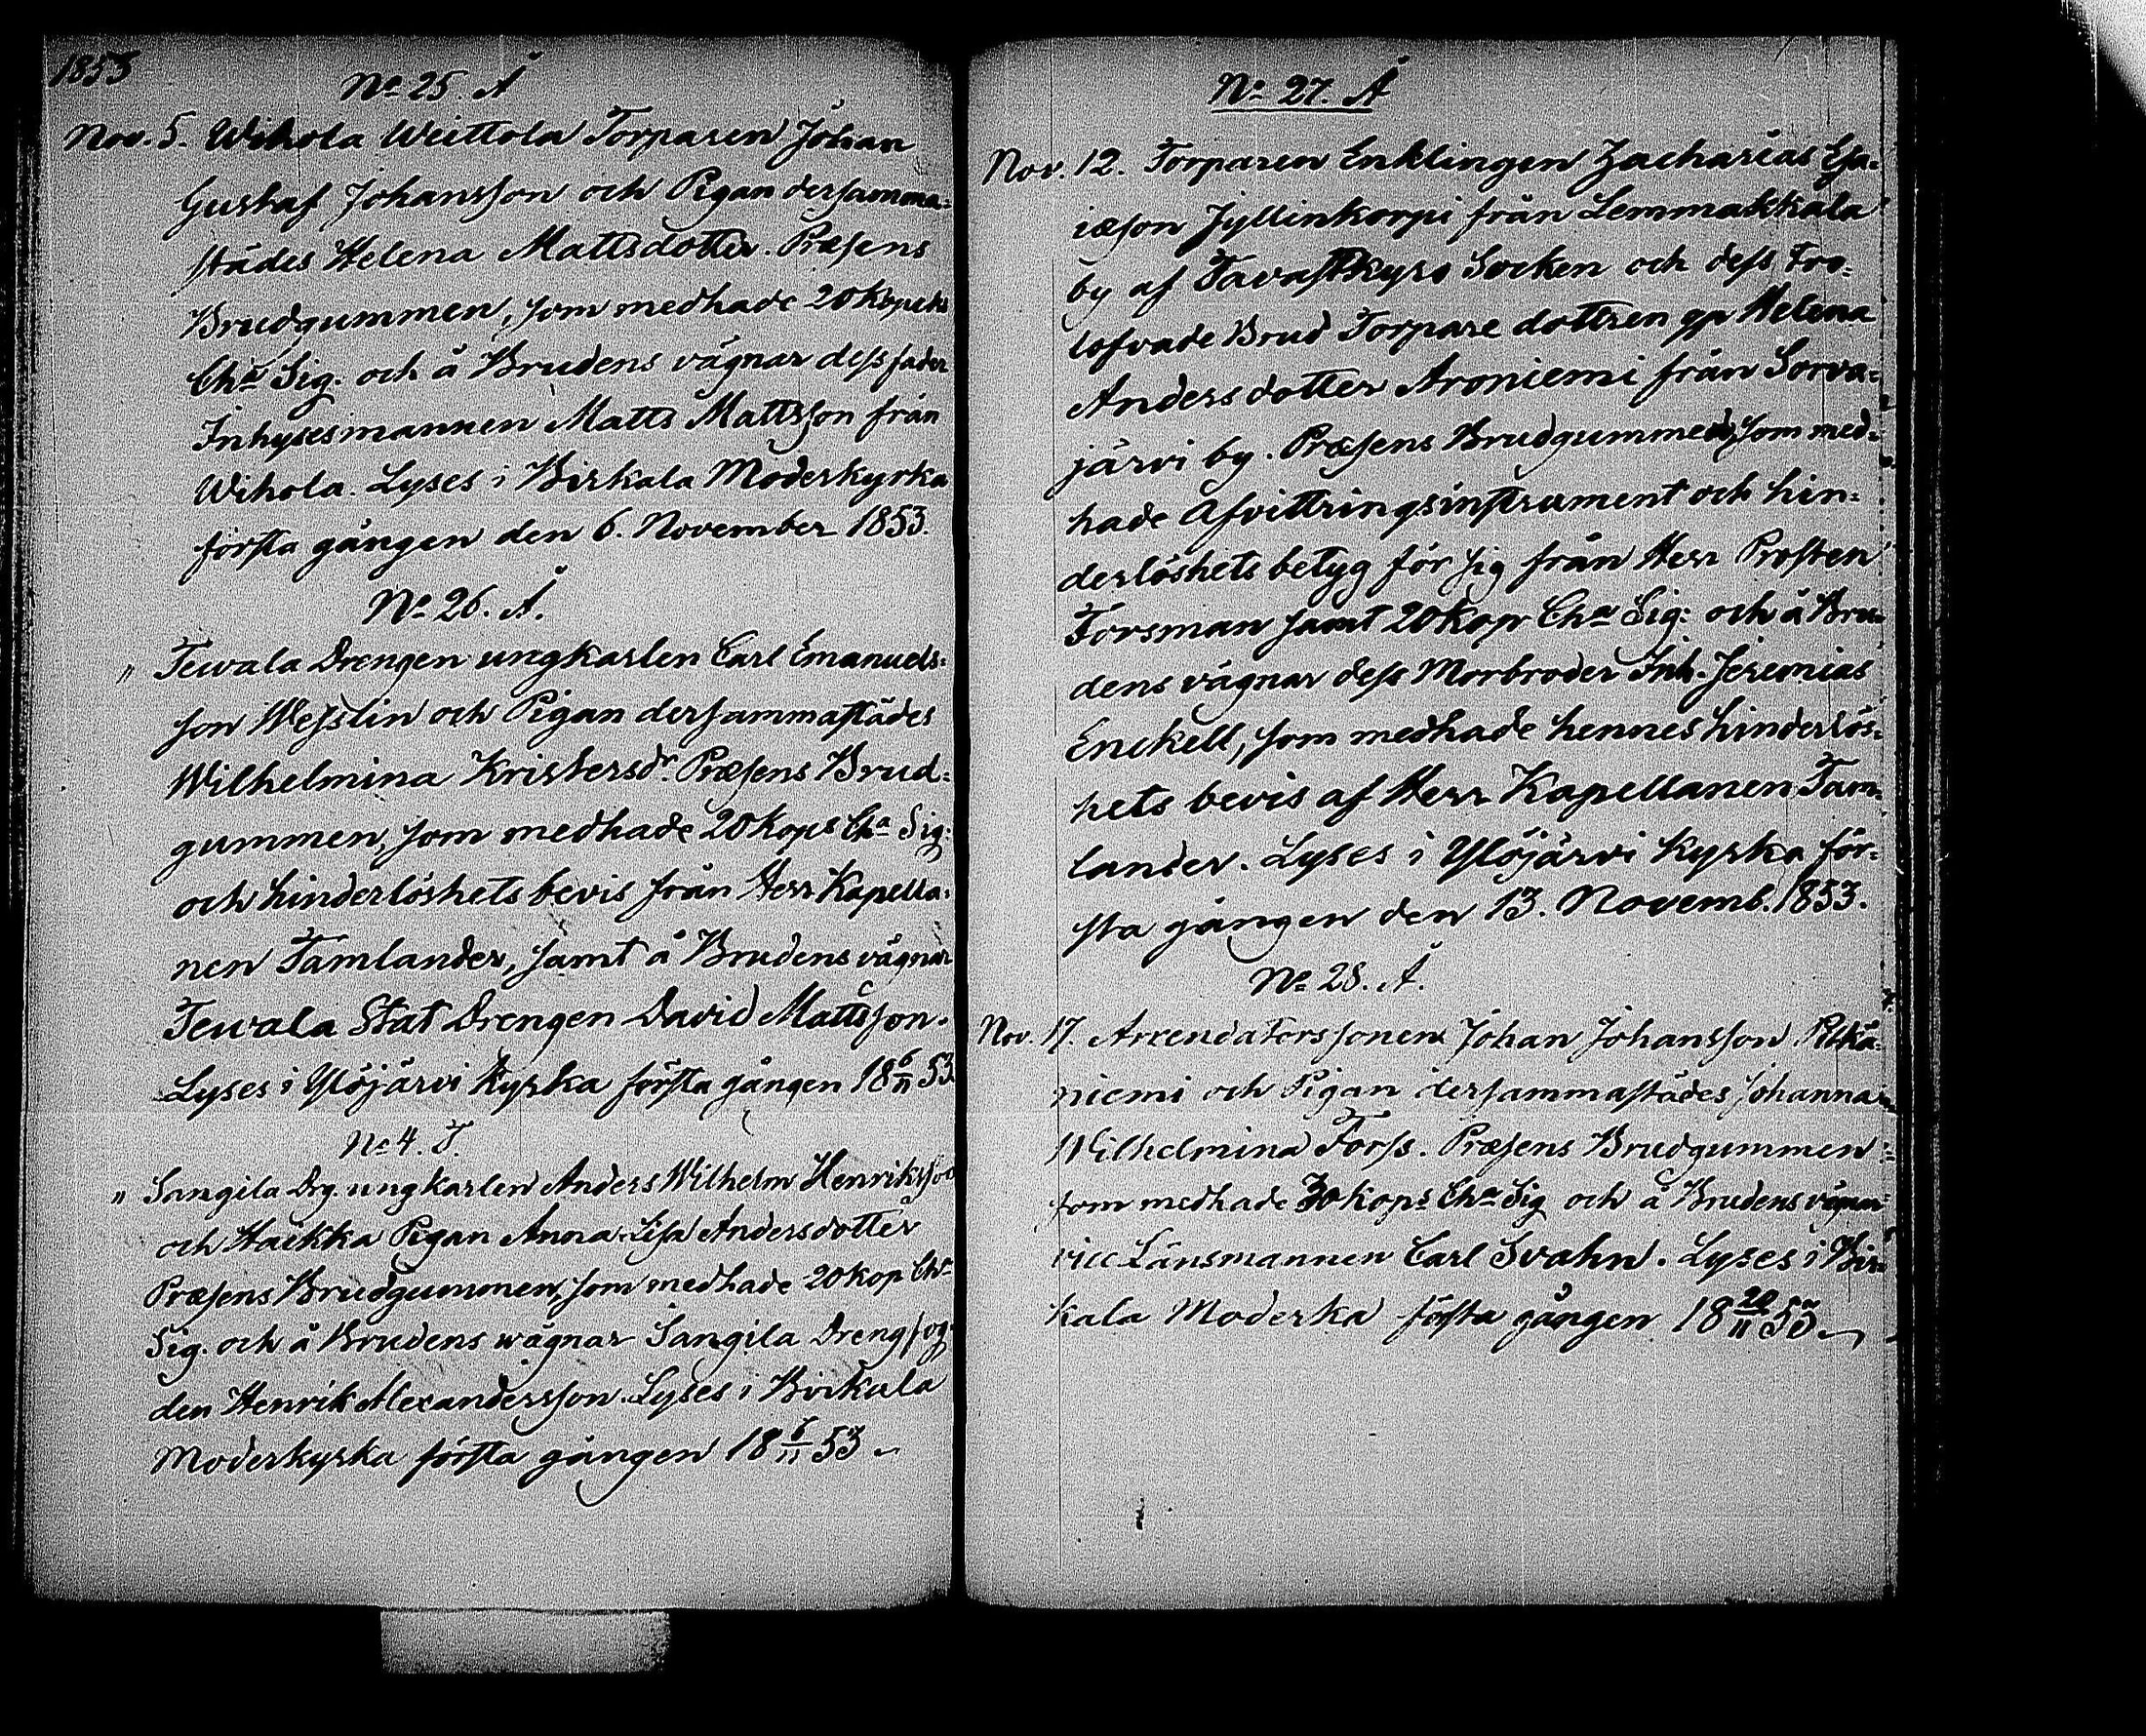 1853
No 25. Å
Nov. 5. Wihola Weittola Torparen Johan
Gustaf Johansson och Pigan dersamma-
städes Helena Mattsdotter. Præsens
Brudgummen, som medhade 20 Kopeks
Cha Sig. och å Brudens vägnar dess fader
Inhysesmannen Matts Mattsson från
Wihola. Lyses i Birkala Moderkyrka
första gången den 6. November 1853.
No 26. Å.
" Tewala Drengen ungkarlen Carl Emanuels-
son Wesslin och Pigan dersammastädes
Wilhelmina Kristersdr. Præsens Brud-
gummen, som medhade 20 Kops Cha Sig:
och hinderlöshets bevis från Herr Kapella-
nen Tamlander, samt å Brudens vägnar
Tewala Stat Drengen David Mattsson.
Lyses i Ylöjärvi Kyrka första gången 18 6/11 53.
No 4. T.
" Sangila Drg. ungkarlen Anders Wilhelm Henriksson
och Haikka Pigan Anna Lisa Andersdotter
Præsens Brudgummen, som medhade 20 Kop Cha
Sig. och å Brudens wägnar Sangila Drengfog-
den Henrik Alexandersson. Lyses i Birkala
Moderkyrka första gången 18 6/11 53
No 27. Å
Nov. 12. Torparen Enklingen Zacharias Esa-
iæson Jyllinkorpi från Lemmakkala
by af Tavastkyro Socken och dess Tro-
lofvade Brud Torpare dottren Helena
Anders dotter Aroniemi från Sorva-
järvi by. Præsens Brudgummen, som med-
hade Afvittringsinstrument och hin-
derlöshets betyg för sig från Herr Prosten
Forsman samt 20 Kop Cha Sig: och å Bru-
dens vägnar dess Morbroder Inh. Jeremias
Enckell, som medhade hennes hinderlös-
hets bevis af Herr Kapellanen Tam-
lander. Lyses i Ylöjärvi Kyrka för-
sta gången den 13. Novemb. 1853.
No 28. Å.
Nov. 17. Arrendatorssonen Johan Johansson Pitkä-
niemi och Pigan dersammastädes Johanna
Wilhelmina Forss. Præsens Brudgummen
som medhade 30 Kops Cha Sig och å Brudens vägnar
vice Länsmannen Carl Svahn. Lyses i Bir-
kala Moderka första gången 18 20/11 53